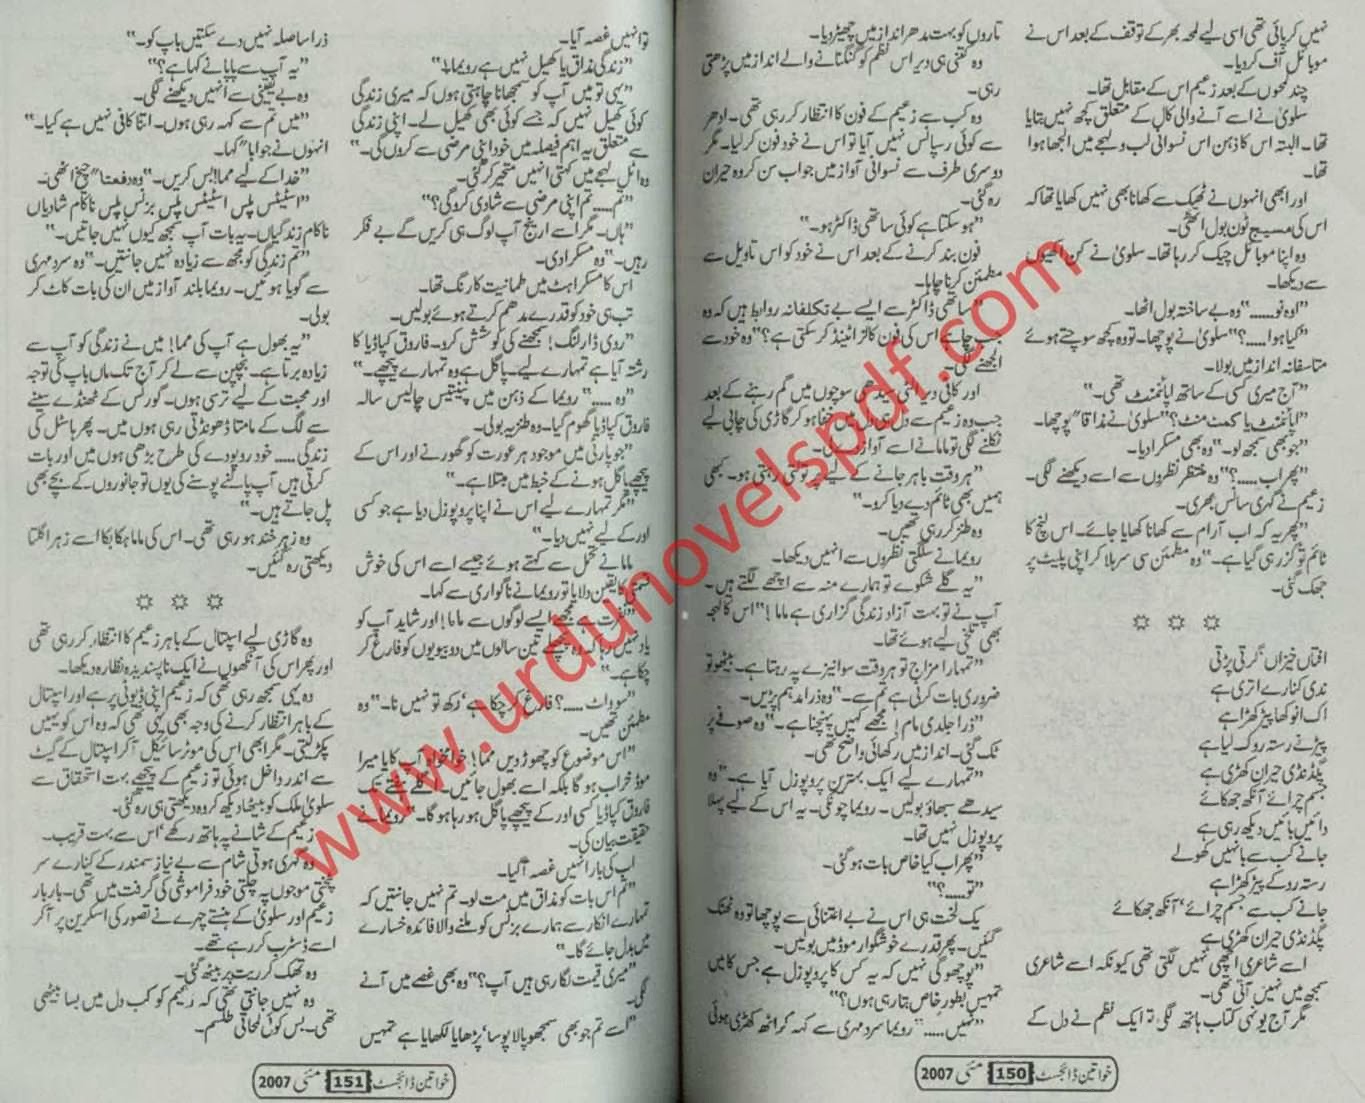 نہیں کر پائی تھی اسی لیے لمحہ بھر کے توقف کے بعد اس نے
موبائل آف کر دیا۔
چند لمحوں کے بعد زعیم اس کے مقابل تھا۔
سلویٰ نے اسے آنے والی کال کے متعلق کچھ نہیں بتایا
تھا۔ البتہ اس کا ذہن اس نسوانی لب و لہجے میں الجھا ہوا
تھا۔
اور ابھی انہوں نے ٹھیک سے کھانا بھی نہیں کھایا تھا کہ
اس کی مسیج ٹون بول اٹھی۔
وہ اپنا موبائل چیک کر رہا تھا۔ سلویٰ نے کن اکھیوں
سے دیکھا۔
”اوہ نو......“ وہ بے ساختہ بول اٹھا۔
”کیا ہوا.....؟“ سلویٰ نے پوچھا۔ تو وہ کچھ سوچتے ہوئے
متاسفانہ انداز میں بولا۔
”آج میری کسی کے ساتھ اپائنمنٹ تھی۔“
”اپائنمنٹ یا کمٹ منٹ؟“ سلویٰ نے مذاقاً پوچھا۔
”جو بھی سمجھ لو۔“ وہ بھی مسکرا دیا۔
”پھر اب.....؟“ وہ منتظر نظروں سے اسے دیکھنے لگی۔
زعیم نے گہری سانس بھری۔
”پھر یہ کہ اب آرام سے کھانا کھایا جائے۔ اس لنچ کا
ٹائم تو گزر ہی گیا ہے۔“ وہ مطمئن سی سر ہلا کر اپنی پلیٹ پر
جھک گئی۔
☼ ☼ ☼
افتاں خیزاں گرتی پڑتی
ندی کنارے اتری ہے
اک انوکھا پیڑ کھڑا ہے
پیڑ نے رستہ روک لیا ہے
پگڈنڈی حیران کھڑی ہے
جسم چرائے آنکھ جھکائے
دائیں بائیں دیکھ رہی ہے
جانے کب سے بانہیں کھولے
رستہ روکے پیڑ کھڑا ہے
جانے کب سے جسم چرائے، آنکھ جھکائے
پگڈنڈی حیران کھڑی ہے
اسے شاعری اچھی نہیں لگتی تھی کیونکہ اسے شاعری
سمجھ میں نہیں آتی تھی۔
مگر آج یونہی کتاب ہاتھ لگی تو ایک نظم نے دل کے
تاروں کو بہت مدھر انداز میں چھیڑ دیا۔
وہ کتنی ہی دیر اس نظم کو گنگنانے والے انداز میں پڑھتی
رہی۔
وہ کب سے زعیم کے فون کا انتظار کر رہی تھی۔ ادھر
سے کوئی رسپانس نہیں آیا تو اس نے خود فون کر لیا۔ مگر
دوسری طرف سے نسوانی آواز میں جواب سن کر وہ حیران
رہ گئی۔
”ہو سکتا ہے کوئی ساتھی ڈاکٹر ہو۔“
فون بند کرنے کے بعد اس نے خود کو اس تاویل سے
مطمئن کرنا چاہا۔
”ساتھی ڈاکٹر سے ایسے بے تکلفانہ روابط ہیں کہ وہ
جب چاہے اس کی فون کالز اٹینڈ کر سکتی ہے؟“ وہ خود سے
الجھنے لگی۔
اور کافی دیر الٹی سیدھی سوچوں میں گم رہنے کے بعد
جب وہ زعیم سے دل ہی دل میں خفا ہو کر گاڑی کی چابی لیے
نکلنے لگی تو ماما نے اسے آواز دی۔
”ہر وقت باہر جانے کے لیے پر تولتی رہتی ہو۔ کبھی
ہمیں بھی ٹائم دے دیا کرو۔“
وہ طنز کر رہی تھیں۔
رویما نے سلگتی نظروں سے انہیں دیکھا۔
”یہ گلے شکوے تو ہمارے منہ سے اچھے لگتے ہیں۔
آپ نے تو بہت آزاد زندگی گزاری ہے ماما!“ اس کا لہجہ
بھی تلخی لیے ہوئے تھا۔
”تمہارا مزاج تو ہر وقت سوا نیزے پہ رہتا ہے۔ بیٹھو تو
ضروری بات کرنی ہے تم سے۔“ وہ ذرا مدھم پڑیں۔
”ذرا جلدی مام! مجھے کہیں پہنچنا ہے۔“ وہ صوفے پر
ٹک گئی۔ انداز میں رکھائی واضح تھی۔
”تمہارے لیے ایک بہترین پروپوزل آیا ہے۔“ وہ
سیدھے سبھاؤ بولیں۔ رویما چونکی۔ یہ اس کے لیے پہلا
پروپوزل نہیں تھا۔
”پھر اب کیا خاص بات ہو گئی۔
”تو.....؟“
یک لخت ہی اس نے بے اعتنائی سے پوچھا تو وہ ٹھٹک
گئیں۔ پھر قدرے خوشگوار موڈ میں بولیں۔
”پوچھو گی نہیں کہ یہ کس کا پروپوزل ہے جس کا میں
تمہیں بطور خاص بتا رہی ہوں؟“
”نہیں.....“ رویما سرد مہری سے کہہ کر اٹھ کھڑی ہوئی
خواتین ڈائجسٹ 150 مئی 2007
تو انہیں غصہ آیا۔
”زندگی مذاق یا کھیل نہیں ہے رویما!“
”یہی تو میں آپ کو سمجھانا چاہتی ہوں کہ میری زندگی
کوئی کھیل نہیں کہ جسے کوئی بھی کھیل لے۔ اپنی زندگی
سے متعلق یہ اہم فیصلہ میں خود اپنی مرضی سے کروں گی۔“
وہ اٹل لہجے میں کہتی انہیں متحیر کر گئی۔
”تم..... تم اپنی مرضی سے شادی کرو گی؟“
”ہاں۔ مگر اسے ارینج آپ لوگ ہی کریں گے بے فکر
رہیں۔“ وہ مسکرا دی۔
اس کا مسکراہٹ میں طمانیت کا رنگ تھا۔
تب ہی خود کو قدرے مدھم کرتے ہوئے بولیں۔
”رومی ڈارلنگ! سمجھنے کی کوشش کرو۔ فاروق کپاڈیا کا
رشتہ آیا ہے تمہارے لیے۔ پاگل ہے وہ تمہارے پیچھے۔“
”وہ.....“ رویما کے ذہن میں پینتیس چالیس سالہ
فاروق کپاڈیا گھوم گیا۔ وہ طنزیہ بولی۔
”جو پارٹی میں موجود ہر عورت کو گھورنے اور اس کے
پیچھے پاگل ہونے کے خبط میں مبتلا ہے۔“
”مگر تمہارے لیے اس نے اپنا پروپوزل دیا ہے جو کسی
اور کے لیے نہیں دیا۔“
ماما نے تحمل سے کہتے ہوئے جیسے اسے اس کی خوش
قسمتی کا یقین دلایا تو رویما نے ناگواری سے کہا۔
”نفرت ہے مجھے ایسے لوگوں سے ماما! اور شاید آپ کو
یاد نہیں رہا کہ وہ پچھلے تین سالوں میں دو بیویوں کو فارغ کر
چکا ہے۔“
”سو واٹ.....؟ فارغ کر چکا ہے، رکھ تو نہیں نا۔“ وہ
مطمئن تھیں۔
”اس موضوع کو چھوڑ دیں مما! خوامخواہ آپ کا یا میرا
موڈ خراب ہو گا بلکہ اسے بھول جائیں۔ اگلے ہفتے تک
فاروق کپاڈیا کسی اور کے پیچھے پاگل ہو رہا ہو گا۔“ رویما نے
حقیقت بیان کی۔
اب کی بار انہیں غصہ آ گیا۔
”تم اس بات کو مذاق میں مت لو۔ تم نہیں جانتیں کہ
تمہارے انکار سے ہمارے بزنس کو ملنے والا فائدہ خسارے
میں بدل جائے گا۔“
”میری قیمت لگا رہی ہیں آپ؟“ وہ بھی غصے میں آنے
لگی۔
”اسے تم جو بھی سمجھو پالا پوسا، پڑھایا لکھایا ہے تمہیں
ذرا سا صلہ نہیں دے سکتیں باپ کو۔“
”یہ آپ سے پاپا نے کہا ہے؟“
وہ بے یقینی سے انہیں دیکھنے لگی۔
”میں تم سے کہہ رہی ہوں۔ اتنا کافی نہیں ہے کیا۔“
انہوں نے جواباً کہا۔
”خدا کے لیے مما! بس کریں۔“ وہ دفعتاً چیخ اٹھی۔
”اسٹیٹس پلس اسٹیٹس پلس بزنس پلس ناکام شادیاں
ناکام زندگیاں۔ یہ بات آپ سمجھ کیوں نہیں جاتیں۔“
”تم زندگی کو مجھ سے زیادہ نہیں جانتیں۔“ وہ سرد مہری
سے گویا ہوئیں۔ رویما بلند آواز میں ان کی بات کاٹ کر
بولی۔
”یہ بھول ہے آپ کی مما! میں نے زندگی کو آپ سے
زیادہ برتا ہے۔ بچپن سے لے کر آج تک ماں باپ کی توجہ
اور محبت کے لیے ترسی ہوں۔ گورنس کے ٹھنڈے سینے
سے لگ کے مامتا ڈھونڈتی رہی ہوں میں۔ پھر ہاسٹل کی
زندگی..... خود رو پودے کی طرح بڑھی ہوں میں اور بات
کرتی ہیں آپ پالنے پوسنے کی یوں تو جانوروں کے بچے بھی
پل جاتے ہیں۔“
وہ زہر خند ہو رہی تھی۔ اس کی ماما ہکا بکا اسے زہر اگلتا
دیکھتی رہ گئیں۔
☼ ☼ ☼
وہ گاڑی لیے اسپتال کے باہر زعیم کا انتظار کر رہی تھی
اور پھر اس کی آنکھوں نے ایک ناپسندیدہ نظارہ دیکھا۔
وہ یہی سمجھ رہی تھی کہ زعیم اپنی ڈیوٹی پر ہے اور اسپتال
کے باہر انتظار کرنے کی وجہ بھی یہی تھی کہ وہ اس کو یہیں
پکڑ لیتی۔ مگر ابھی اس کی موٹر سائیکل آ کر اسپتال کے گیٹ
سے اندر داخل ہوئی تو زعیم کے پیچھے بہت استحقاق سے
سلویٰ ملک کو بیٹھا دیکھ کر وہ دیکھتی ہی رہ گئی۔
زعیم کے شانے پہ ہاتھ رکھے، اس سے بہت قریب۔
وہ گہری ہوتی شام سے بے نیاز سمندر کے کنارے سر
پٹختی موجوں پہ چلتی خود فراموشی کی گرفت میں تھی۔ بار بار
زعیم اور سلویٰ کے ہنستے چہرے تصور کی اسکرین پر آ کر
اسے ڈسٹرب کر رہے تھے۔
وہ تھک کر ریت پر بیٹھ گئی۔
وہ نہیں جانتی تھی کہ زعیم کو کب دل میں بسا بیٹھی
تھی۔ بس کوئی لمحاتی طلسم۔
خواتین ڈائجسٹ 151 مئی 2007
www.urdunovelspdf.com